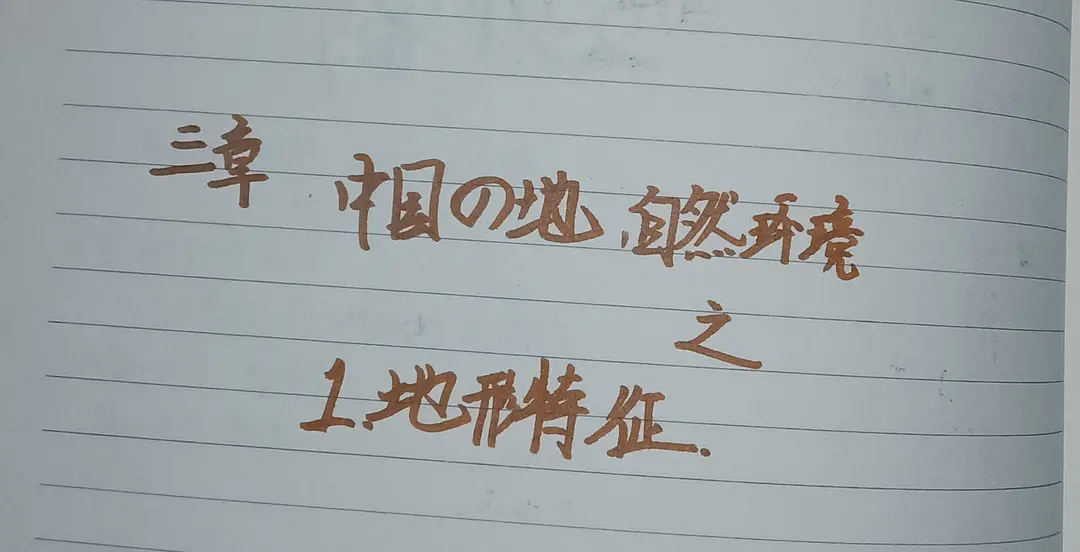 三章 中国の地 自然环境
之
1.地形特征.